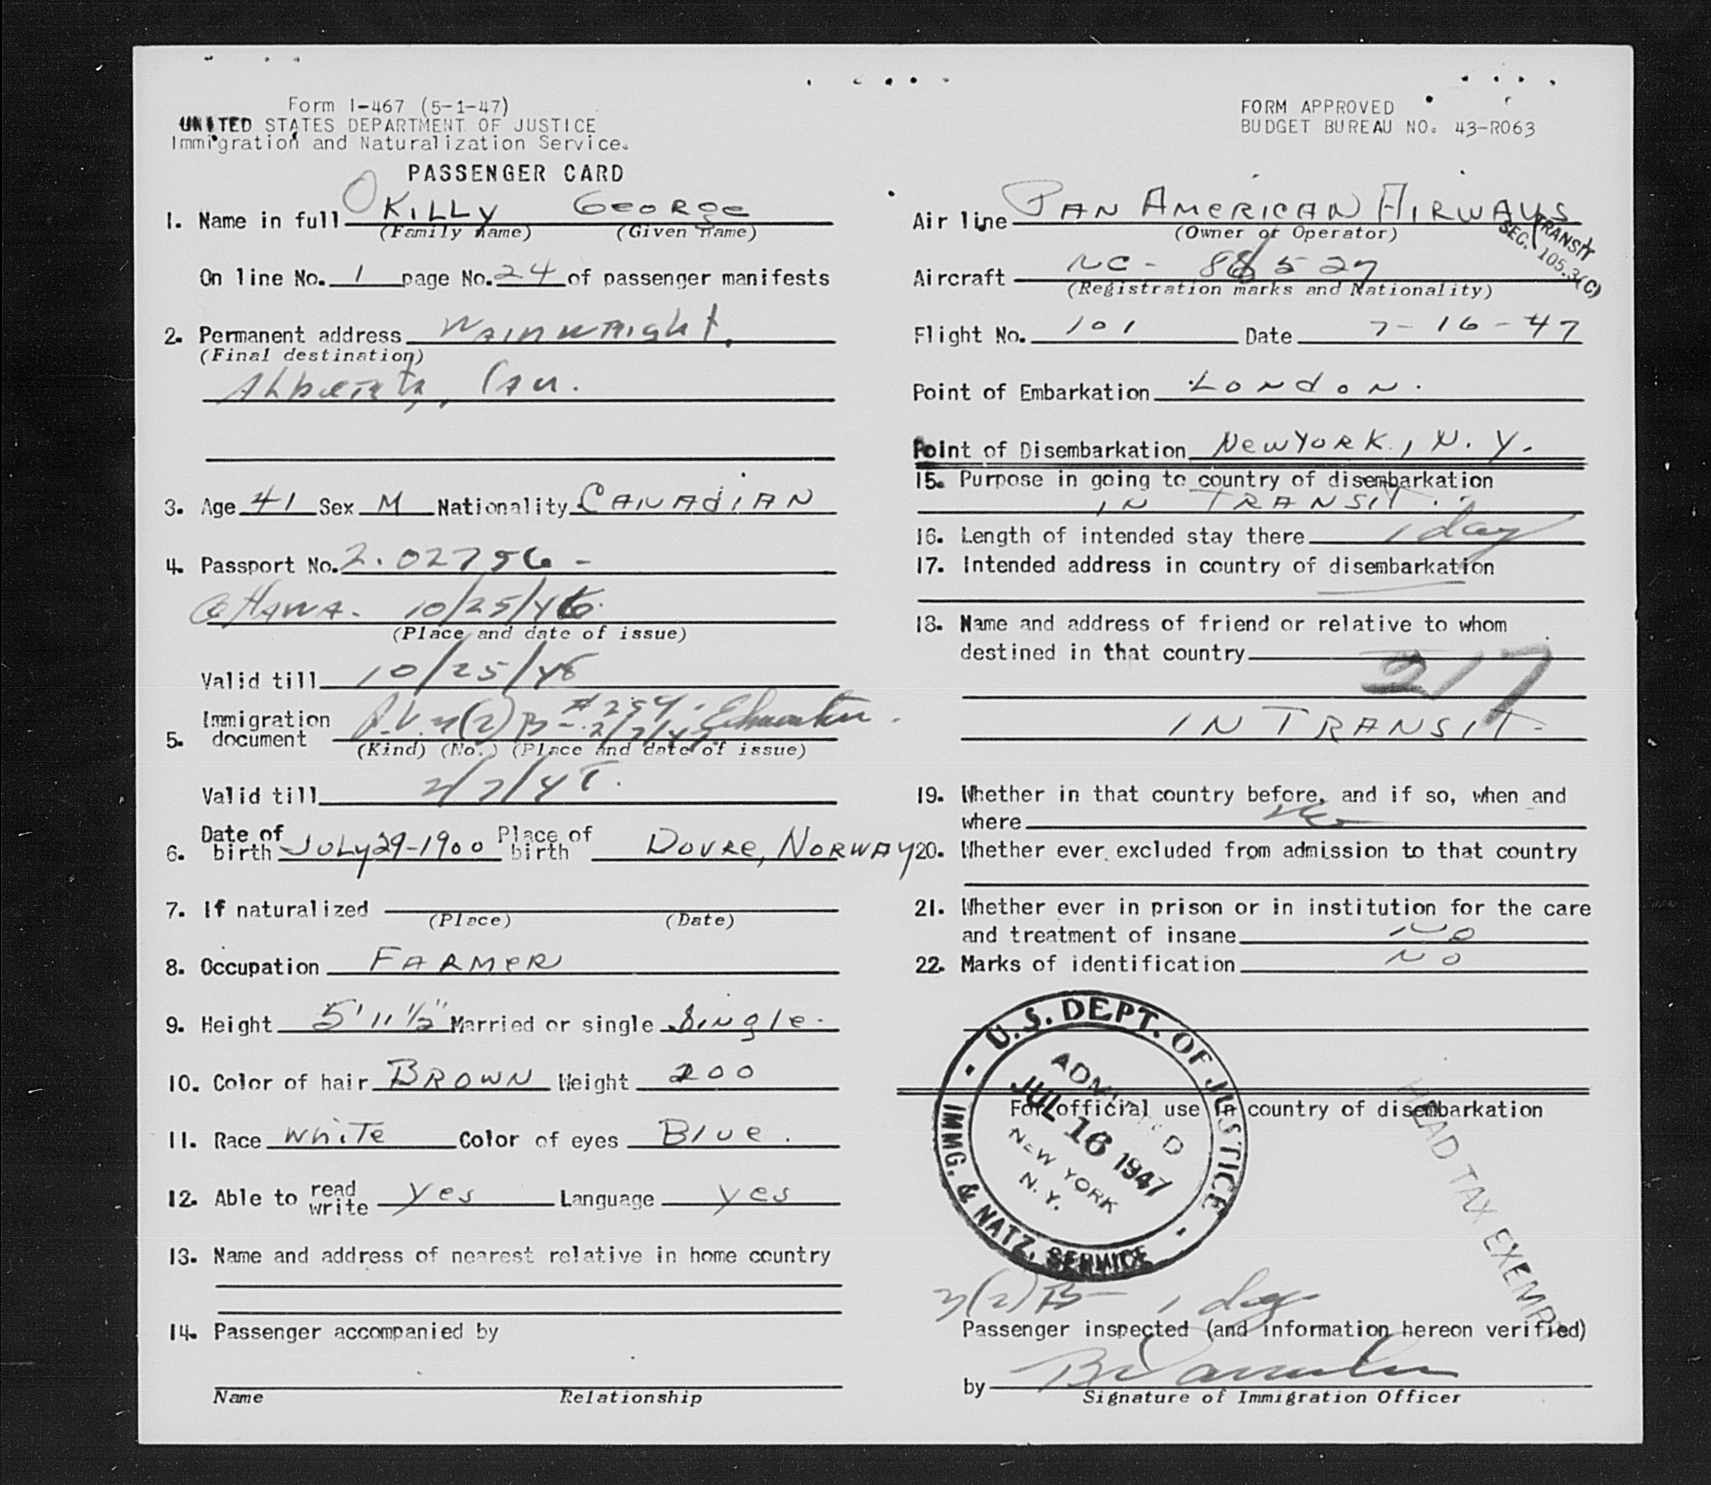 Form I-467 (5-1-47)
UNITED STATES DEPARTMENT OF JUSTICE
Immigration and Naturalization Service.
PASSENGER CARD
1. Name in full OKILLY GEORGE
(Family name) (Given name)
On line No. 1 page No. 24 of passenger manifests
2. Permanent address WAINWRIGHT,
(Final destination)
Alberta, Can.
3. Age 41 Sex M Nationality CANADIAN
4. Passport No. 2.02756 -
Ottawa. 10/25/46
(Place and date of issue)
Valid till 10/25/48
5. Immigration document #254. Edmonton.
(Kind) (No.) (Place and date of issue)
Valid till
6. Date of birth JULY 29-1900 Place of birth DOVRE, NORWAY
7. If naturalized
(Place) (Date)
8. Occupation FARMER
9. Height 5' 11 1/2" Married or single Single.
10. Color of hair BROWN Weight 200
11. Race WHITE Color of eyes Blue.
12. Able to read write yes Language yes
13. Name and address of nearest relative in home country
14. Passenger accompanied by
Name Relationship
FORM APPROVED
BUDGET BUREAU NO. 43-R063
Air line PAN AMERICAN AIRWAYS
(Owner or Operator)
TRANSIT
SEC. 105.3(C)
Aircraft NC - 88527
(Registration marks and Nationality)
Flight No. 101 Date 7-16-47
Point of Embarkation LONDON.
Point of Disembarkation NEW YORK, N.Y.
15. Purpose in going to country of disembarkation
IN TRANSIT.
16. Length of intended stay there 1 day
17. Intended address in country of disembarkation
18. Name and address of friend or relative to whom
destined in that country
217
IN TRANSIT.
19. Whether in that country before, and if so, when and
where
20. Whether ever excluded from admission to that country
21. Whether ever in prison or in institution for the care
and treatment of insane NO
22. Marks of identification NO
U.S. DEPT. OF JUSTICE
IMMG. & NATZ. SERVICE
ADMITTED
JUL 16 1947
NEW YORK
N.Y.
For official use in country of disembarkation
HEAD TAX EXEMPT
3(2)B- 1 day
Passenger inspected (and information hereon verified)
by
Signature of Immigration Officer